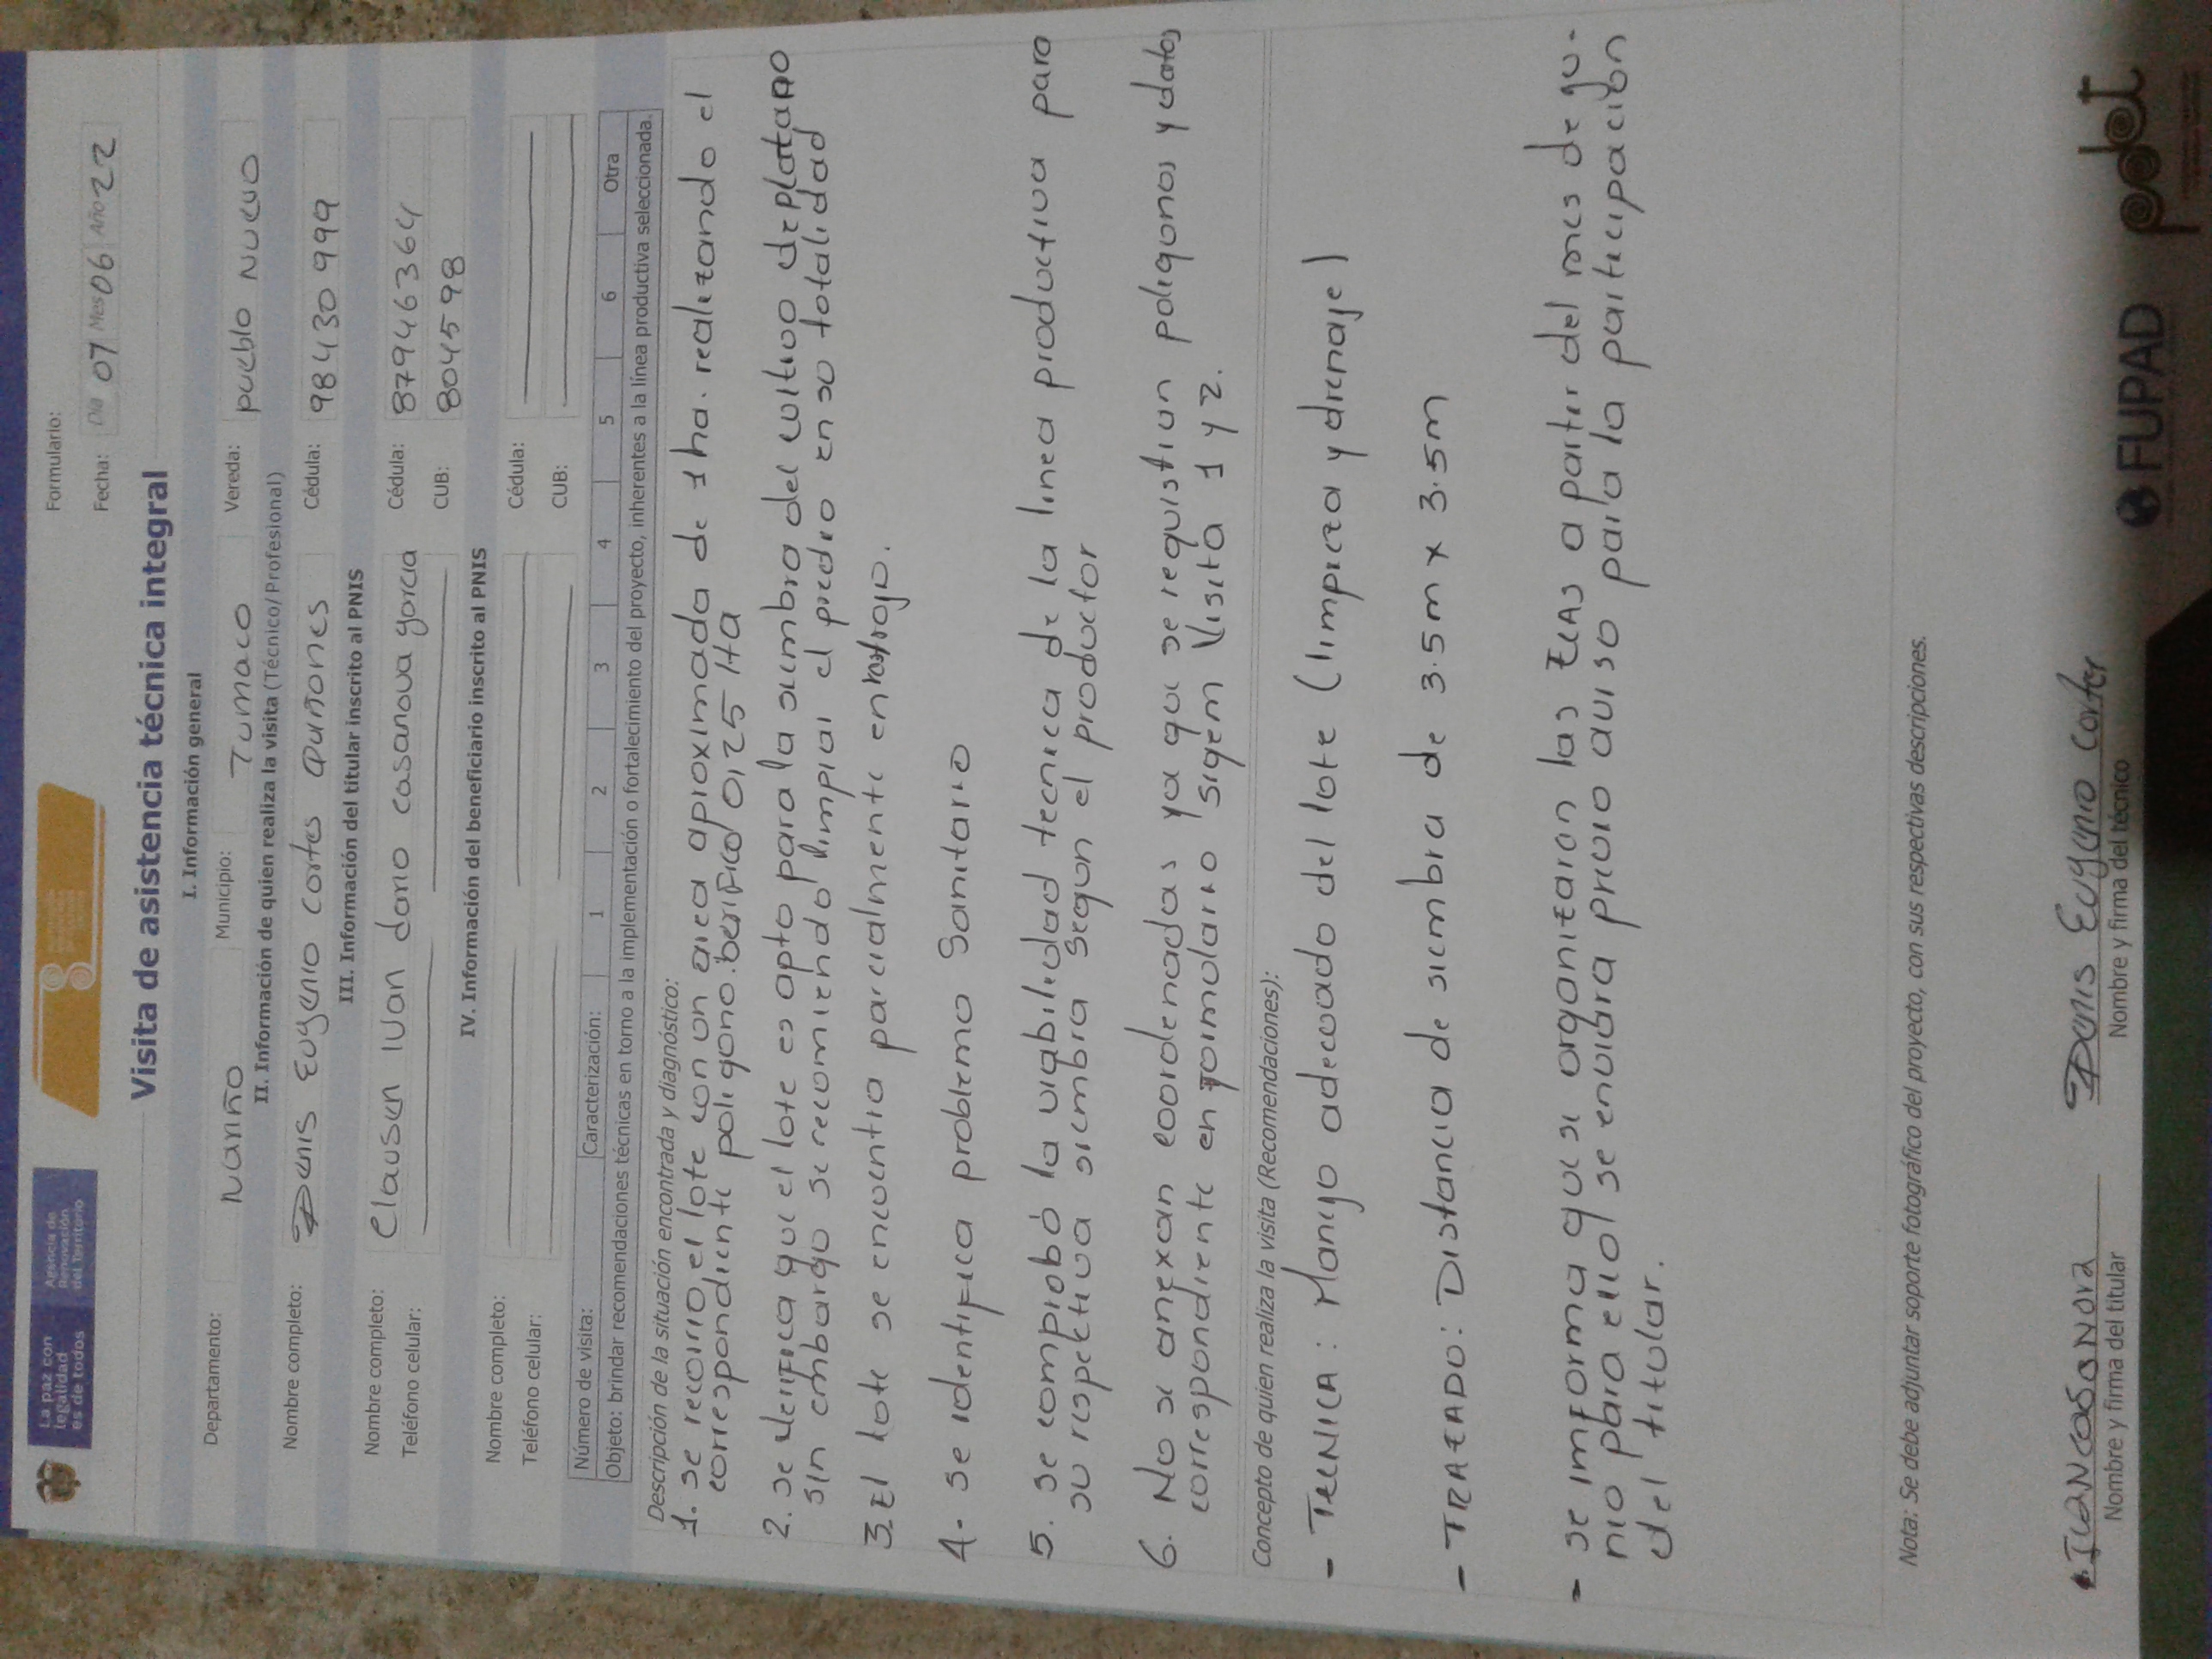 La paz con
legalidad
es de todos
Agencia de
Renovación
del Territorio
Formulario:
Fecha: Día 07 Mes 06 Año 22
Visita de asistencia técnica integral
I. Información general
Departamento: Nariño Municipio: Tumaco Vereda: pueblo Nuevo
II. Información de quien realiza la visita (Técnico/Profesional)
Nombre completo: Denis Eugenio Cortes Quiñones Cédula: 98430999
III. Información del titular inscrito al PNIS
Nombre completo: Clausen Ivan dario casanova garcia Cédula: 87946364
Teléfono celular: CUB: 8045598
IV. Información del beneficiario inscrito al PNIS
Nombre completo: Cédula:
Teléfono celular: CUB:
Número de visita: Caracterización: 1 2 3 4 5 6 Otra
Objeto: brindar recomendaciones técnicas en torno a la implementación o fortalecimiento del proyecto, inherentes a la línea productiva seleccionada.
Descripción de la situación encontrada y diagnóstico:
1. se recorrio el lote con un area aproximada de 1 ha. realizando el
correspondiente poligono. berifico 0,25 Ha
2. se verifica que el lote es apto para la siembra del cultivo de platano
sin embargo se recomiendo limpiar el predio en so totalidad
3. El lote se encuentra parcialmente enrastrojo.
4- se identifica problema Sanitario
5. se comprobó la viabilidad tecnica de la linea productiva para
su respetiva siembra segun el productor
6. No se anexan coordenadas ya que se requistion poligonos y datos
correspondiente en formulario sigem Visita 1 y 2.
Concepto de quien realiza la visita (Recomendaciones):
- TECNICA: Manejo adecuado del lote (limpieza y drenaje)
- TRAZADO: Distancia de siembra de 3.5m x 3.5m
- se informa que se organizaron las ECAS a partir del mes de ju-
nio para ello se enviara previo aviso para la participación
del titular.
Nota: Se debe adjuntar soporte fotográfico del proyecto, con sus respectivas descripciones.
IVANCASANOVA Denis Eugenio Cortes
Nombre y firma del titular Nombre y firma del técnico
FUPAD pdet